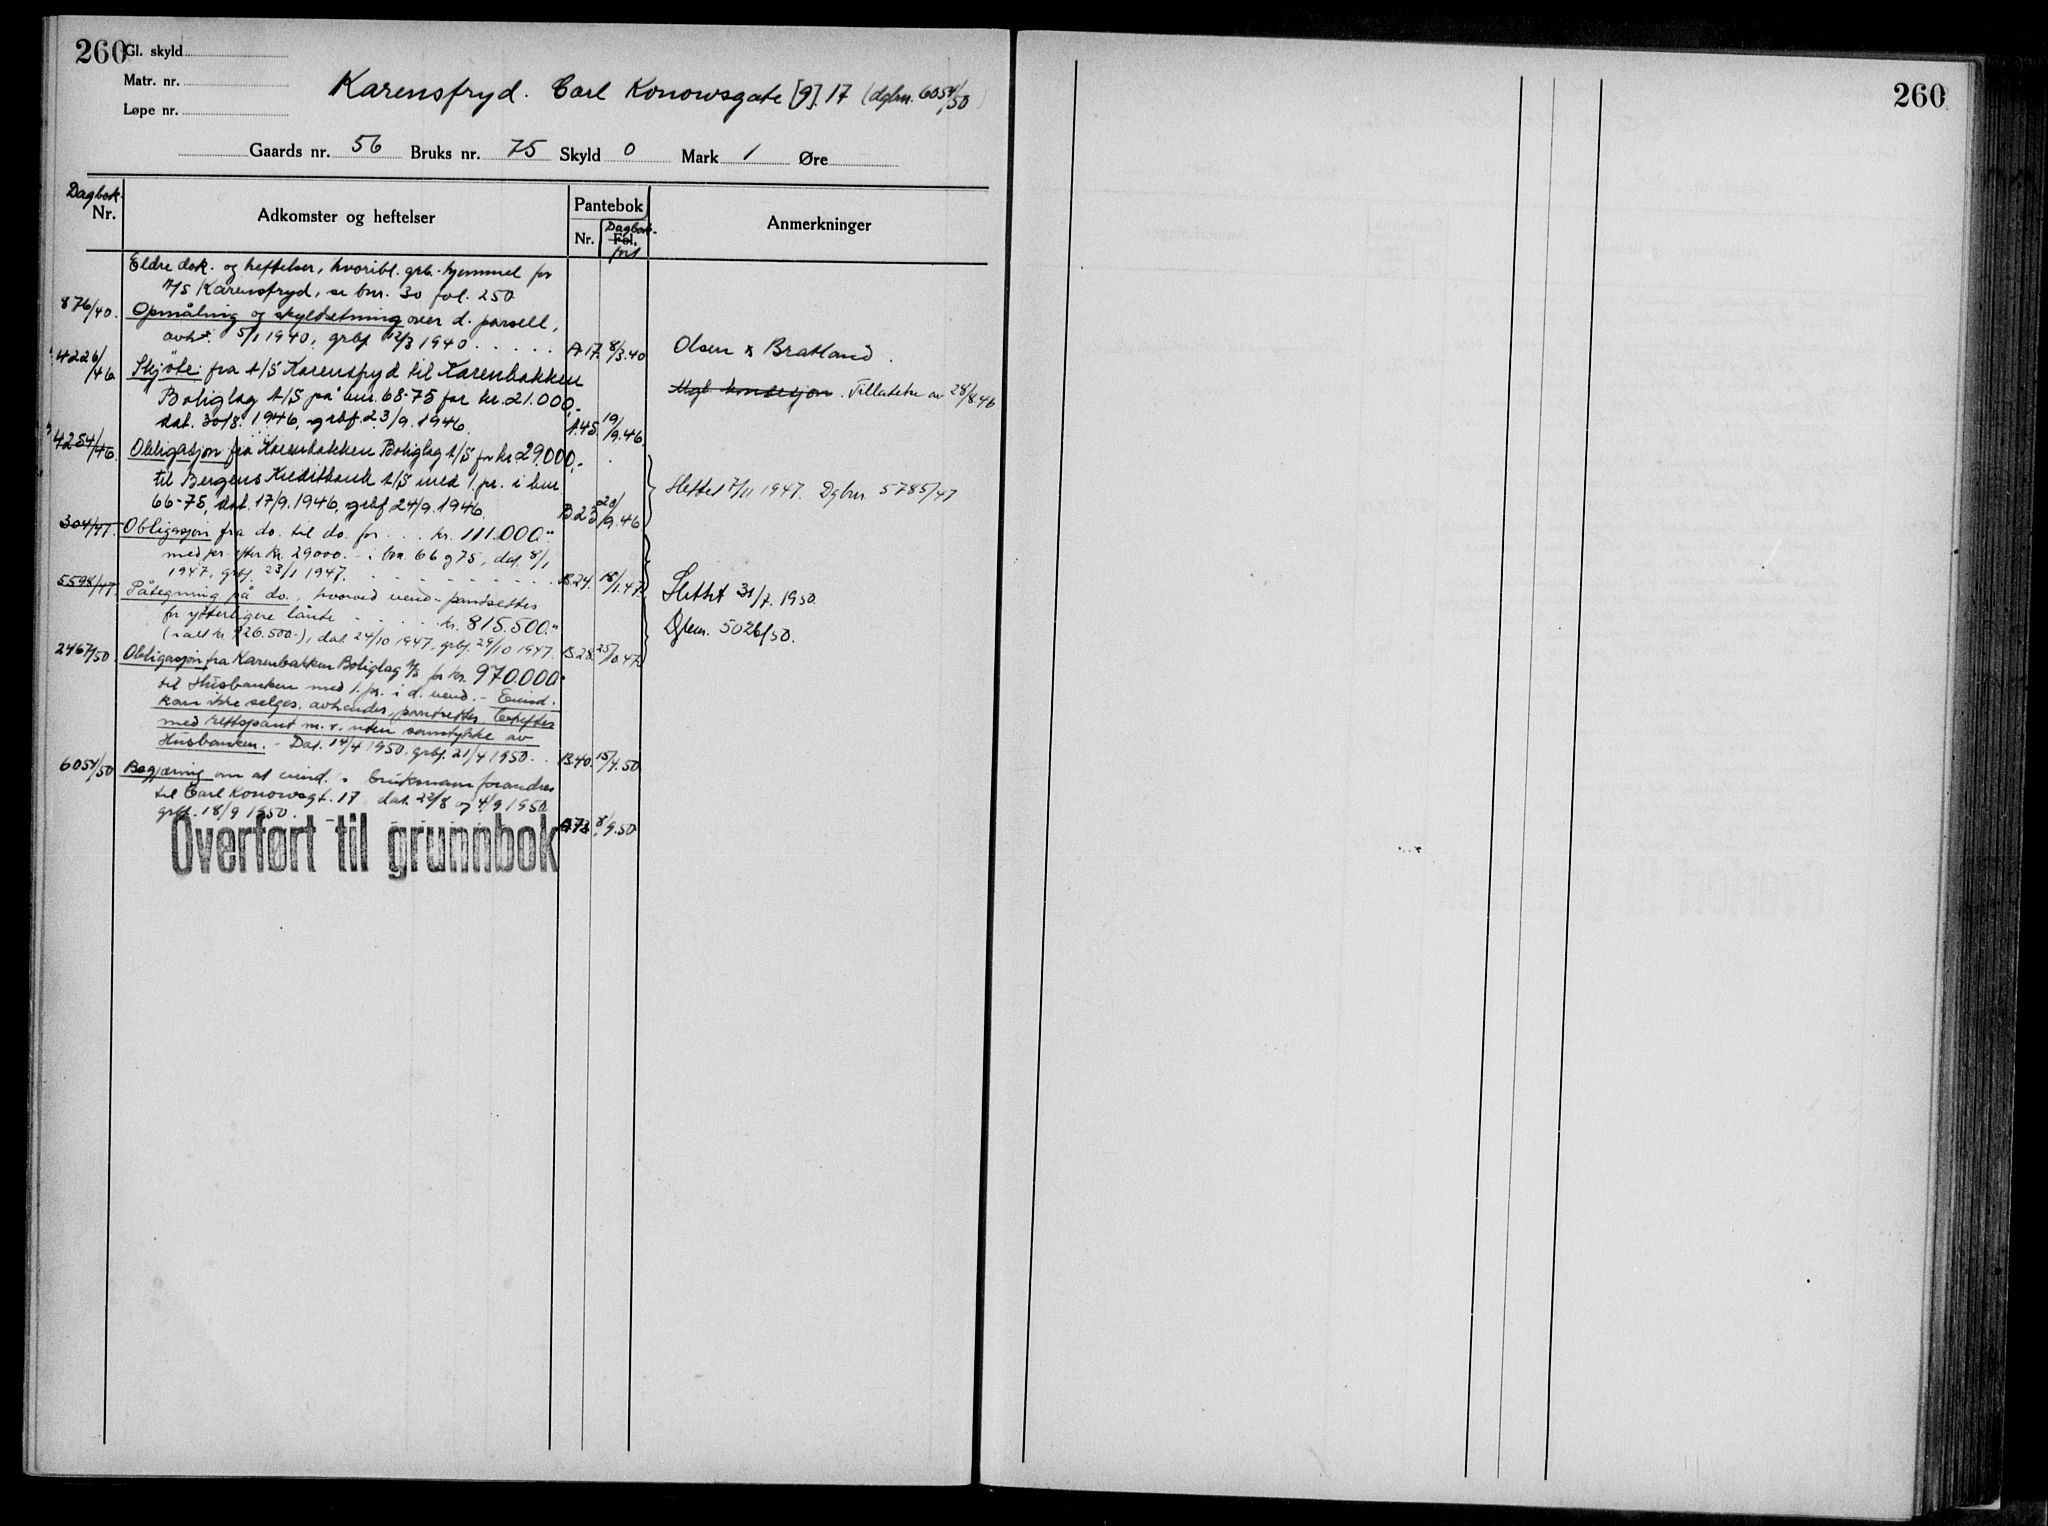 260
Gl. skyld
Matr. nr.
Løpe nr.
Karensfryd. Carl Konowsgate [9]. 17 (dgbnr. 6054/50)
Gaards nr. 56 Bruks nr. 75 Skyld 0 Mark 1 Øre
Dagbok- Nr.
Adkomster og heftelser
Pantebok
Nr.
Fol. Dagbok-ført
Anmerkninger
Eldre dok. og heftelser, hvoribl. grb. hjemmel for
A/S Karensfryd, se bnr. 30 fol. 250
876/40. Opmåling og skyldsetning over d. parsell,
avh. 5/1 1940, grbf 12/3 1940 . . . . . A17. 8/3.40 Olsen & Bratland.
4226/46 Skjøte fra A/S Karensfryd til Karenbakken
Boliglag A/S på bnr. 68-75 for kr. 21.000,- Mgl. konsesjon. Tillatelse av 28/8.46
dat. 30/8. 1946, grbf. 23/9. 1946. A.45. 19/9.46.
4254/46. Obligasjon fra Karenbakken Boliglag A/S for kr. 29.000,-
til Bergens Kreditbank A/S med 1. pr. i bnr
66-75, dat. 17/9. 1946, grbf 24/9. 1946. B.23 20/9.46. Slettet 7/11 1947. Dgbnr. 5785/47
304/47. Obligasjon fra do. til do. for . . . kr. 111.000.-
med pr. efter kr. 29000.- i bnr. 66 og 75, dat. 8/1
1947, grbf. 23/1 1947. B.24. 18/1.47.
5598/47. Påtegning på do., hvorved eiend. pantsettes
for ytterligere lånte . . . . . kr. 815.500.-
(i alt kr. 926.500.-), dat. 24/10 1947, grbf. 29/10 1947. B.28. 25/10.47.
Slettet 31/7. 1950.
Dgbnr. 5026/50.
2467/50 Obligasjon fra Karenbakken Boliglag A/S for kr. 970.000.-
til Husbanken med 1. pr. i d. eiend. - Eiend.
kan ikke selges, avhendes, pantsettes, beheftes
med rettspant m.v. uten samtykke av
Husbanken. - Dat. 14/4 1950, grbf. 21/4 1950. . B.40. 15/4.50.
6054/50 Begjæring om at eiend.s bruksnavn forandres
til Carl Konowsgt. 17 dat. 22/8 og 4/9 1950
grbf. 18/9 1950. A73 8/9.50
Overført til grunnbok
260